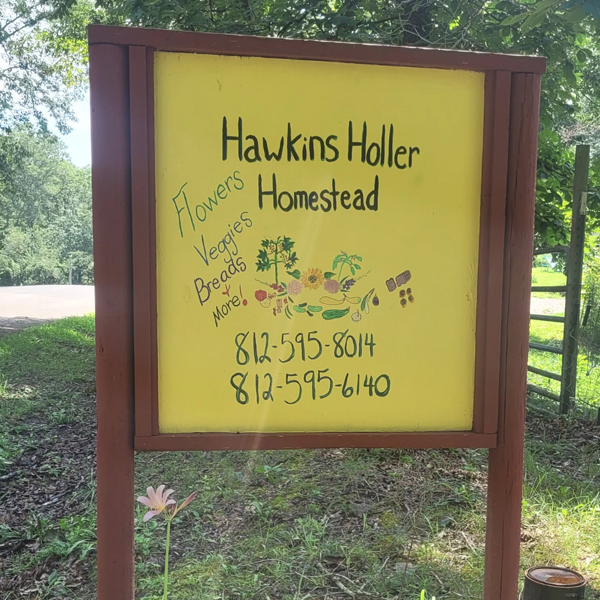 Hawkins Holler
Homestead
Flowers
Veggies
Breads
More!
812-595-8014
812-595-6140